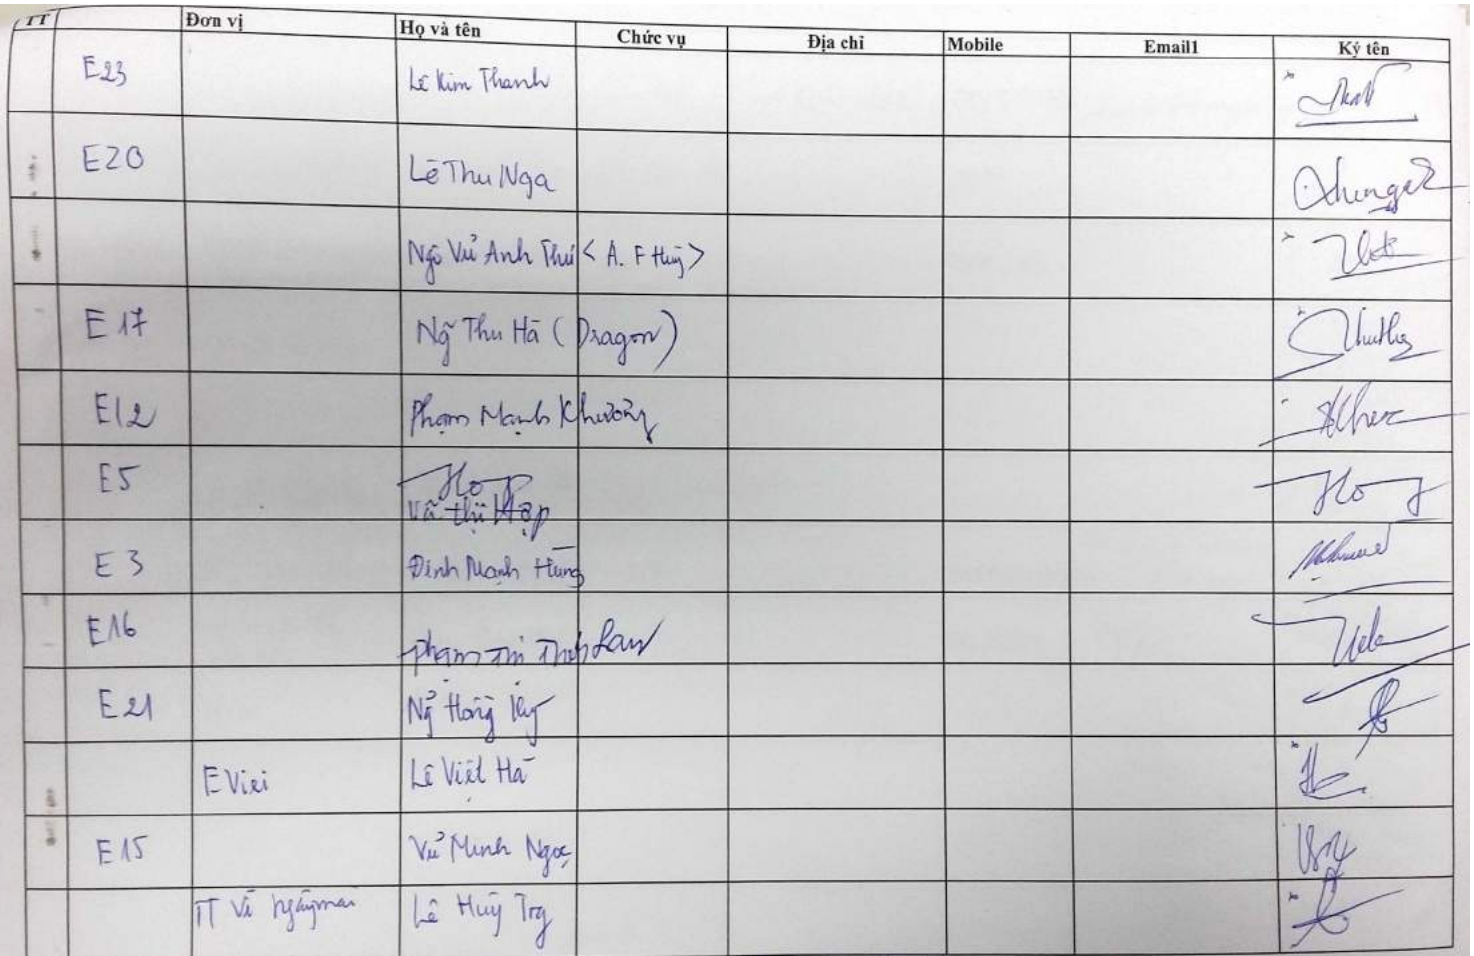 TT Đơn vị Họ và tên Chức vụ Địa chỉ Mobile Email1 Ký tên
E23 Lê Kim Thanh
E20 Lê Thu Nga
Ngô Vũ Anh Thư < A. F Huy >
E17 Ng~ Thu Hà (Dragon)
E12 Phạm Mạnh Khương
E5 Hợp
Vũ Thị Hợp
E3 Đinh Mạnh Hùng
E16 Phạm Thị Thuý Lan
E21 Ng~ Hồng
E Viei Lê Việt Hà
E15 Vũ Minh Ngọc
TT Vì ngày mai Lê Huy Trg